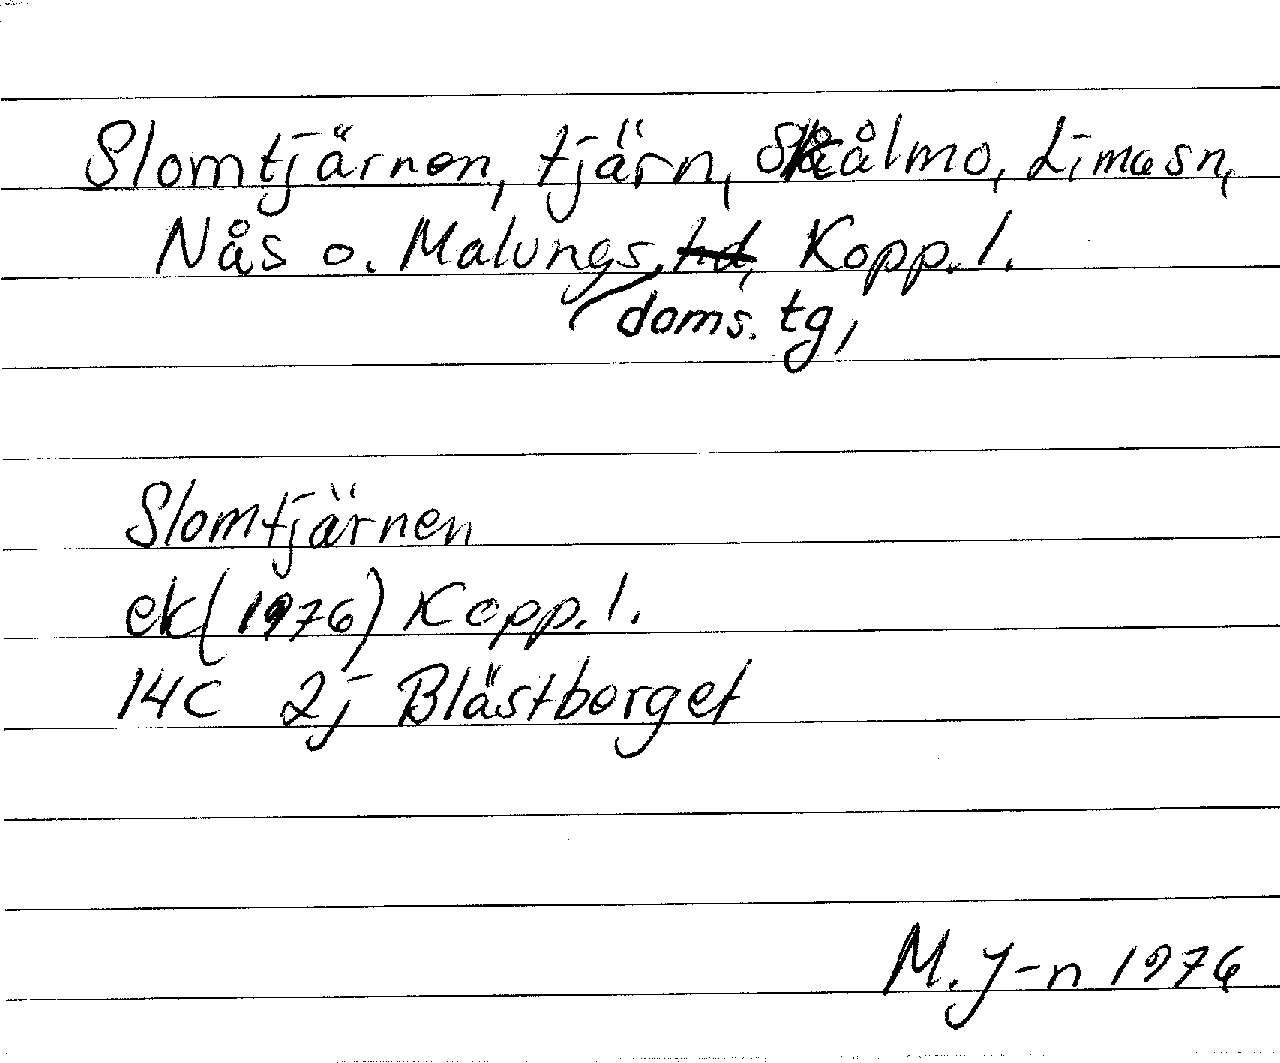 Slomtjärnen, tjärn, Skålmo, Lima sn,
Nås o. Malungs hd, Kopp. l.
doms. tg,
Slomtjärnen
ek (1976) Kopp. l.
14C 2j Blästberget
M. J-n 1976